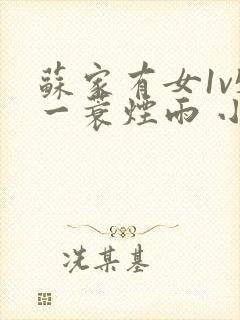 蘇家有女1v
一蓑煙雨 小
冼某基